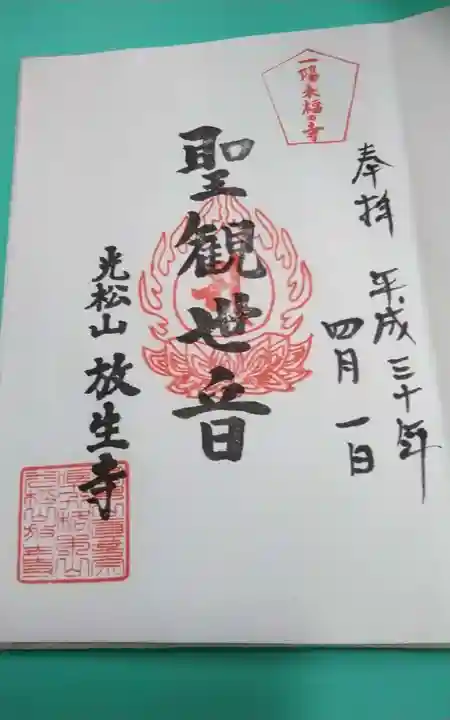 一陽来福の寺
奉拝
平成三十年
四月一日
聖観世音
光松山
放生寺